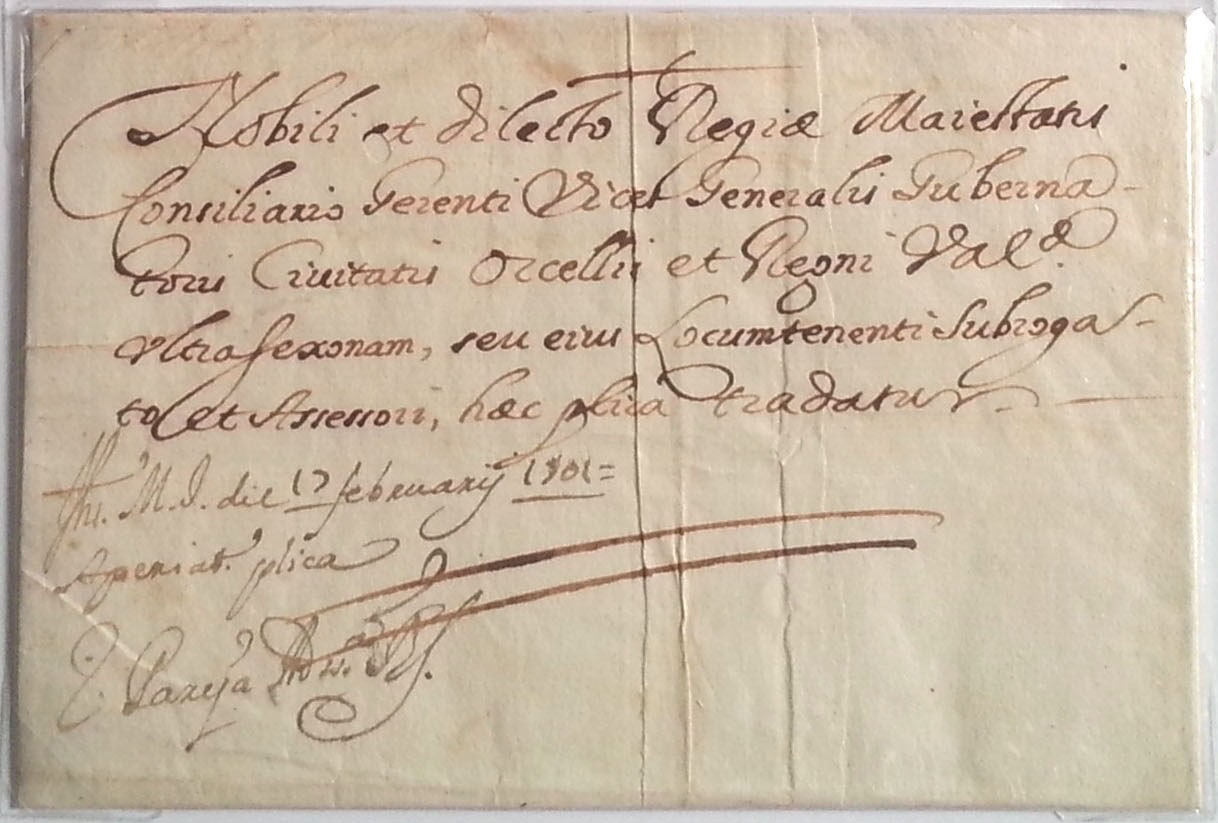 Nobili et dilecto Regiæ Maiestatis
Consiliario Gerenti Vices Generalis Guberna-
toris Ciuitatis Orcellis et Regni Val.ᵃ
vltra sexonam, seu eius Locumtenenti Subroga-
to et Assessori, hæc plica tradatur.
M. D. die 17 februarij 1701=
Aperiat.ʳ plica
Pareja Ass.ʳ